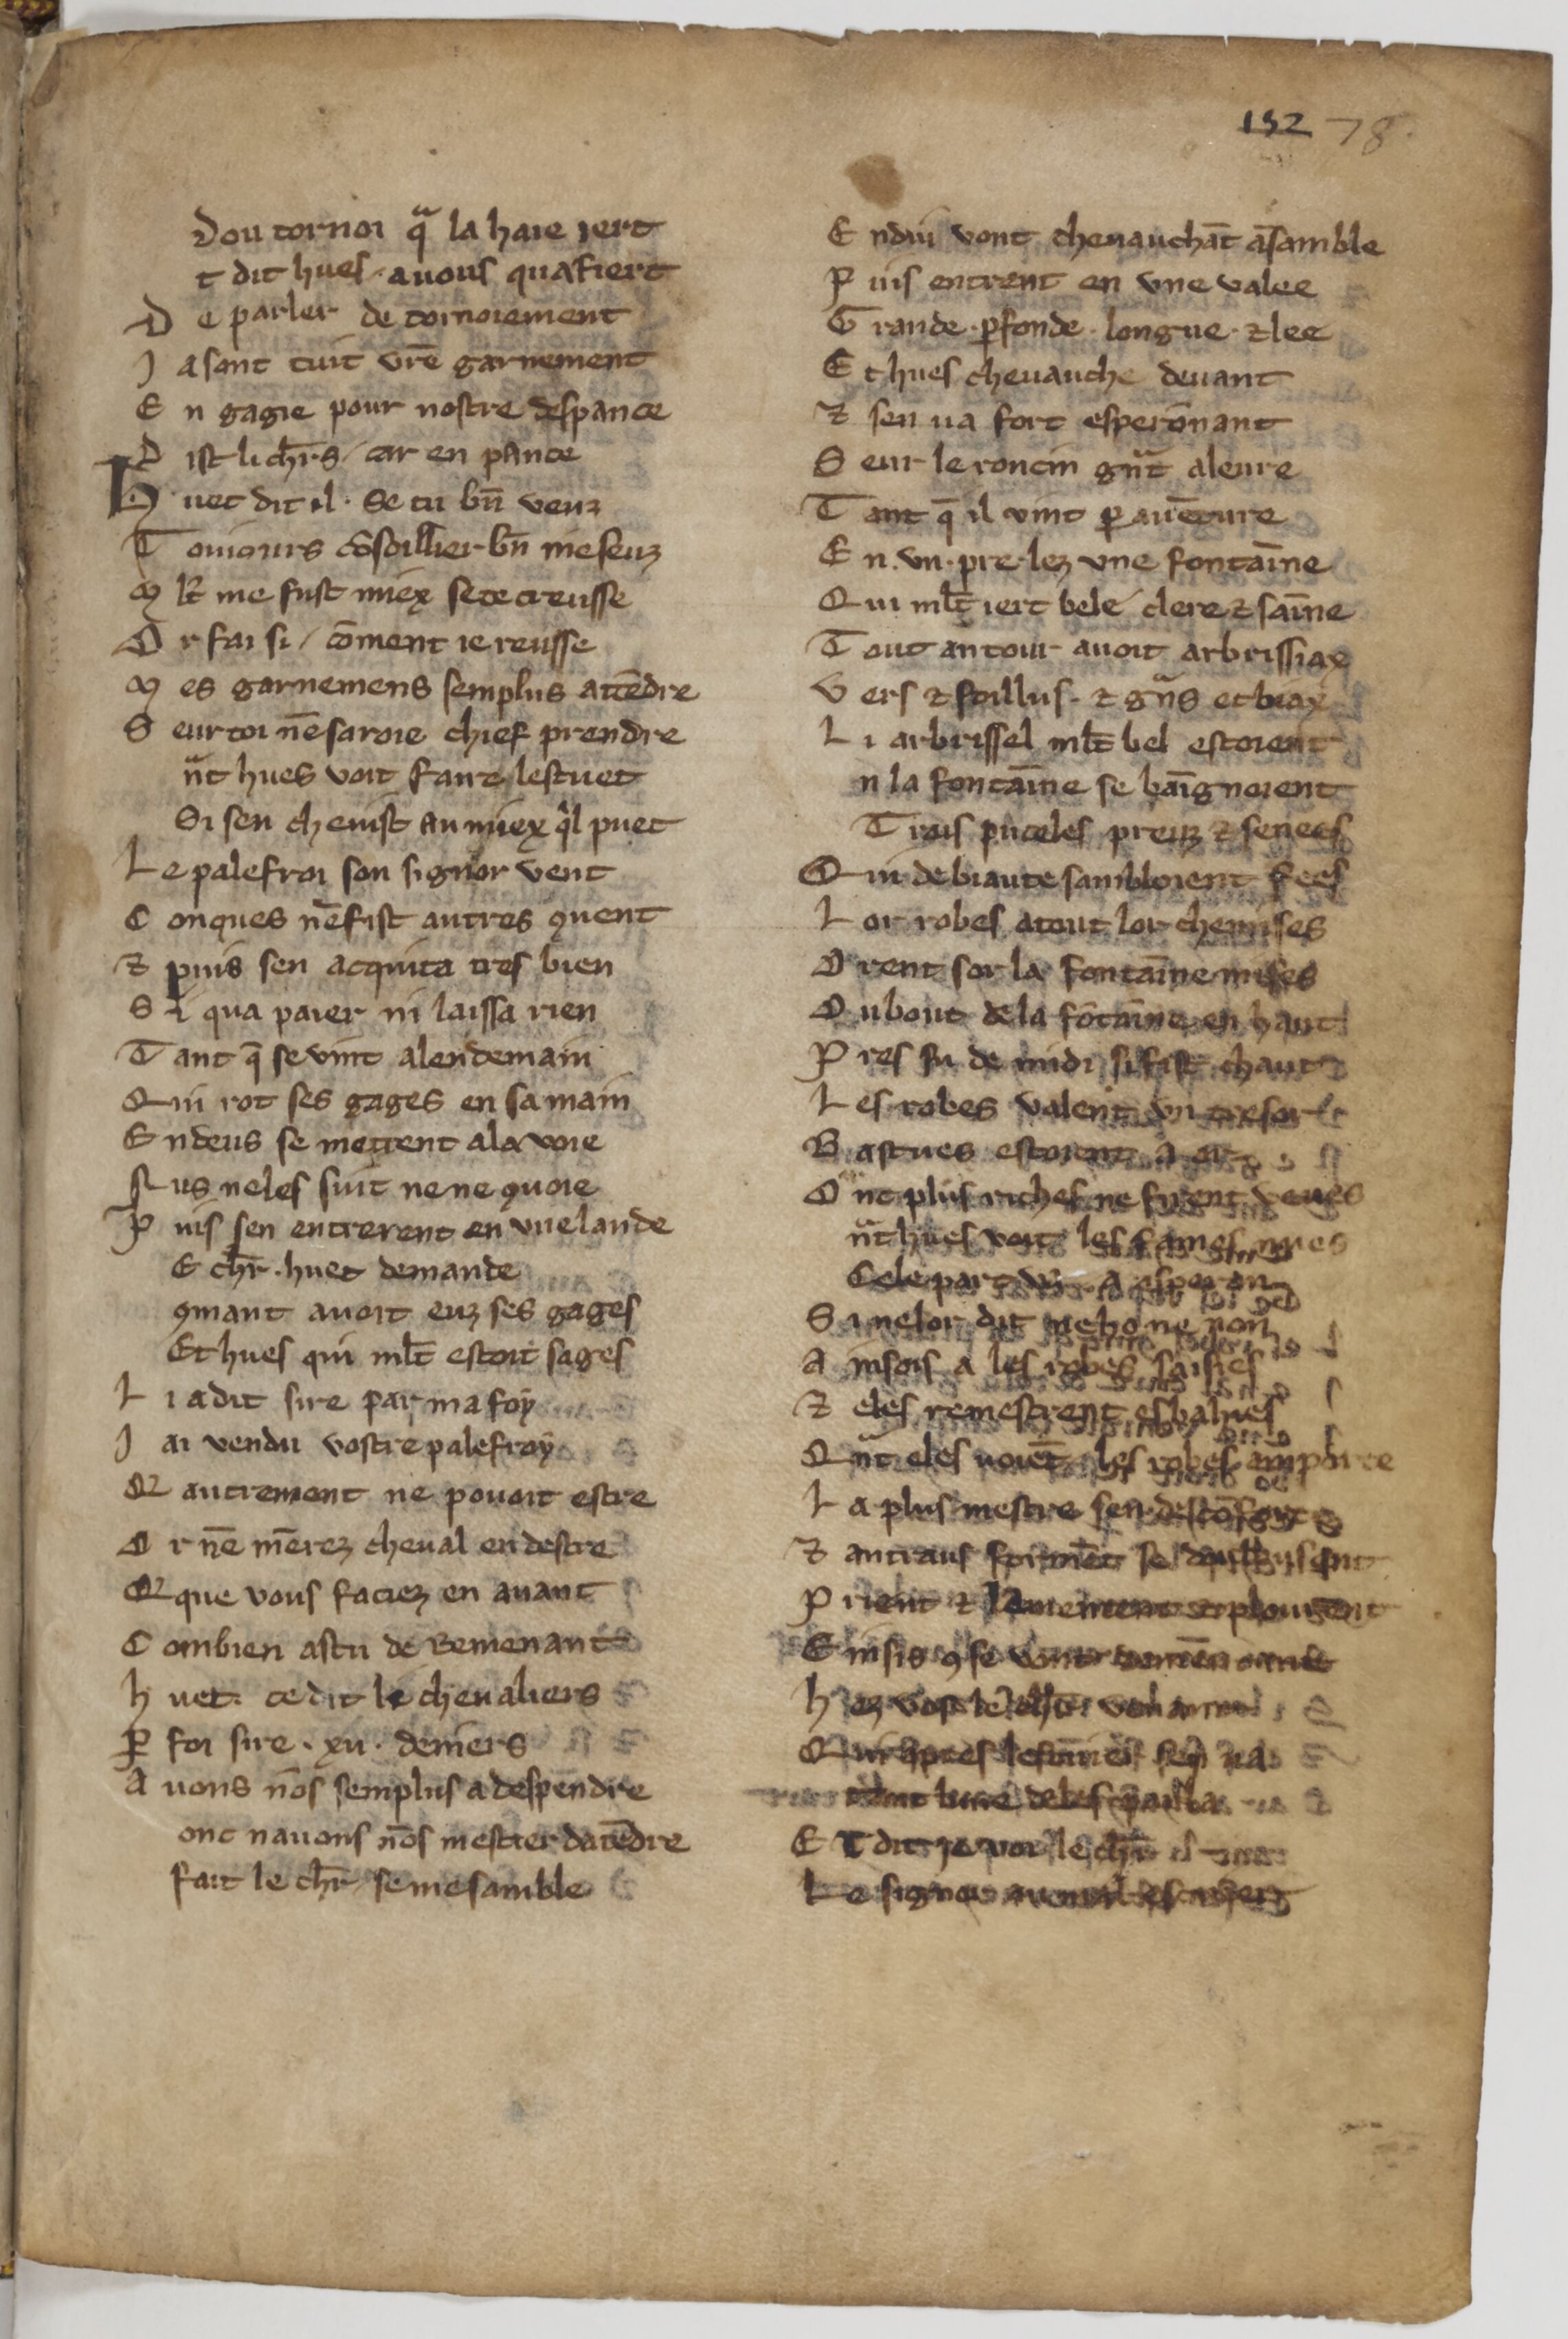 132 78.
Dou tornoi qͣ la haie iert
t dit hues / auous quafiert
D e parler de tornoiement
J a sont tuit vr̄e garnement
E n gagie pour nostre despance
D ist li chr̄s / car en pance
H uet dit il . Se tu bn̄ veuz
T ouiours cōsoillier bn̄ me seuz
M lt̄ me fust miex se te creusse
O r fai si / cōment ie reusse
M es garnemens semplus atēdre
S eur toi nē saroie chief prendre
n̄ͣt hues voit faire lestuet
Si sen cheuist au miex qͥl puet
L e palefroi son signor vent
C onques nē fist autres ꝯuent
⁊ puis sen acquita tres bien
S i qua paier ni laissa rien
T ant q̄ se vint alendemain
Q ui rot ses gages en sa main
E ndeus se metent ala voie
N us neles suit ne ne ꝯuoie
P uis sen entrerent en vne lande
E chr̄ . huet demande
ꝯmant auoit euz ses gages
Et hues qui mlt̄ estoit sages
L i a dit sire par ma foy
J ai vendu vostre palefroy
Q autrement ne pouoit estre
O r nē mērez cheual en destre
Q que vous faciez en auant
C ombien astu de Remenant
h uet . ce dit li cheualiers
ꝑ foi sire . xii . deniers
A uons nōs semplus a despendre
onc nauons nōs mestier datēdre
fait le chr̄ / se me samble
E ndui vont cheuauchāt āsamble
P uis entrent en vne valee
G rande . ꝑfonde . longue . ⁊ lee
E t hues cheuauche deuant
⁊ sen ua fort esperōnant
S eur le roncin gn̄ͣt aleure
T ant q̄ il vint ꝑ auēture
E n . vn . pre . lez vne fontaīne
Q ui mlt̄ iert bele / clere ⁊ saīne
T out antour auoit arbrissiax
V ers ⁊ foillus . ⁊ gn̄ͣs et biax
L i arbrissel mlt̄ bel estoient
n la fontaīne se baīgnoient
T rois puceles preuz ⁊ senees
Q ui de biaute sambloient fees
L or robes atout lor chemises
O rent sor la fontaīne mises
O u bout de la fōtaīne en haut
P res fu de midi si fist chaut
L es robes valent vn tresor
B astues estoient a or
O nc plus riches ne furent veues
n̄ͣt hues voit les fames nues
Cele part a esperon
S i ne lor dit ne ho ne non
A insois a les robes saisies
⁊ eles remestrent esbahies
Q n̄ͣt eles uoiēt les robes amporte
L a plus mestre sen descōforte
⁊ antraus formēt se
P rient ⁊ plourent
E insis ꝯ se vont
h ez vos le chr̄ venant
Q ui apres sen ua
lune deles
E t dit ie voi le chr̄
L e signor